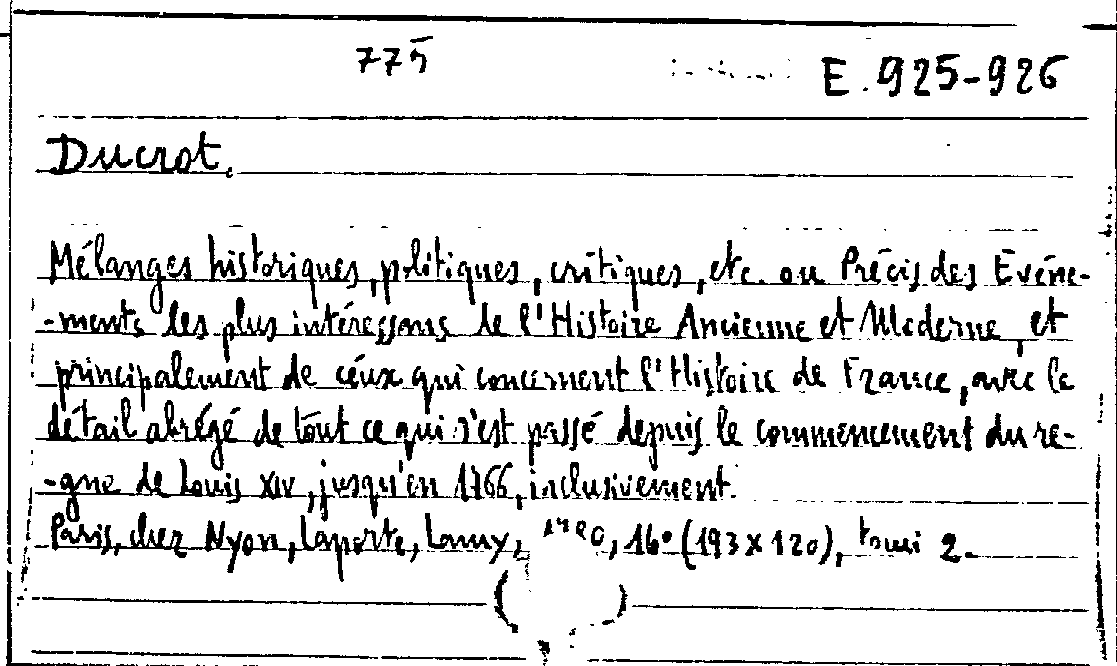 775
E. 925-926
Ducrot.
Mélanges historiques, politiques, critiques, etc. ou Précis des Evéne-
-ments les plus intéressans de l'Histoire Ancienne et Moderne, et
principalement de ceux qui concernent l'Histoire de France, avec le
détail abrégé de tout ce qui s'est passé depuis le commencement du re-
-gne de Louis XIV, jusqu'en 1766, inclusivement.
Paris, chez Nyon, Laporte, Lamy, 16° (193 x 120), tomi 2.